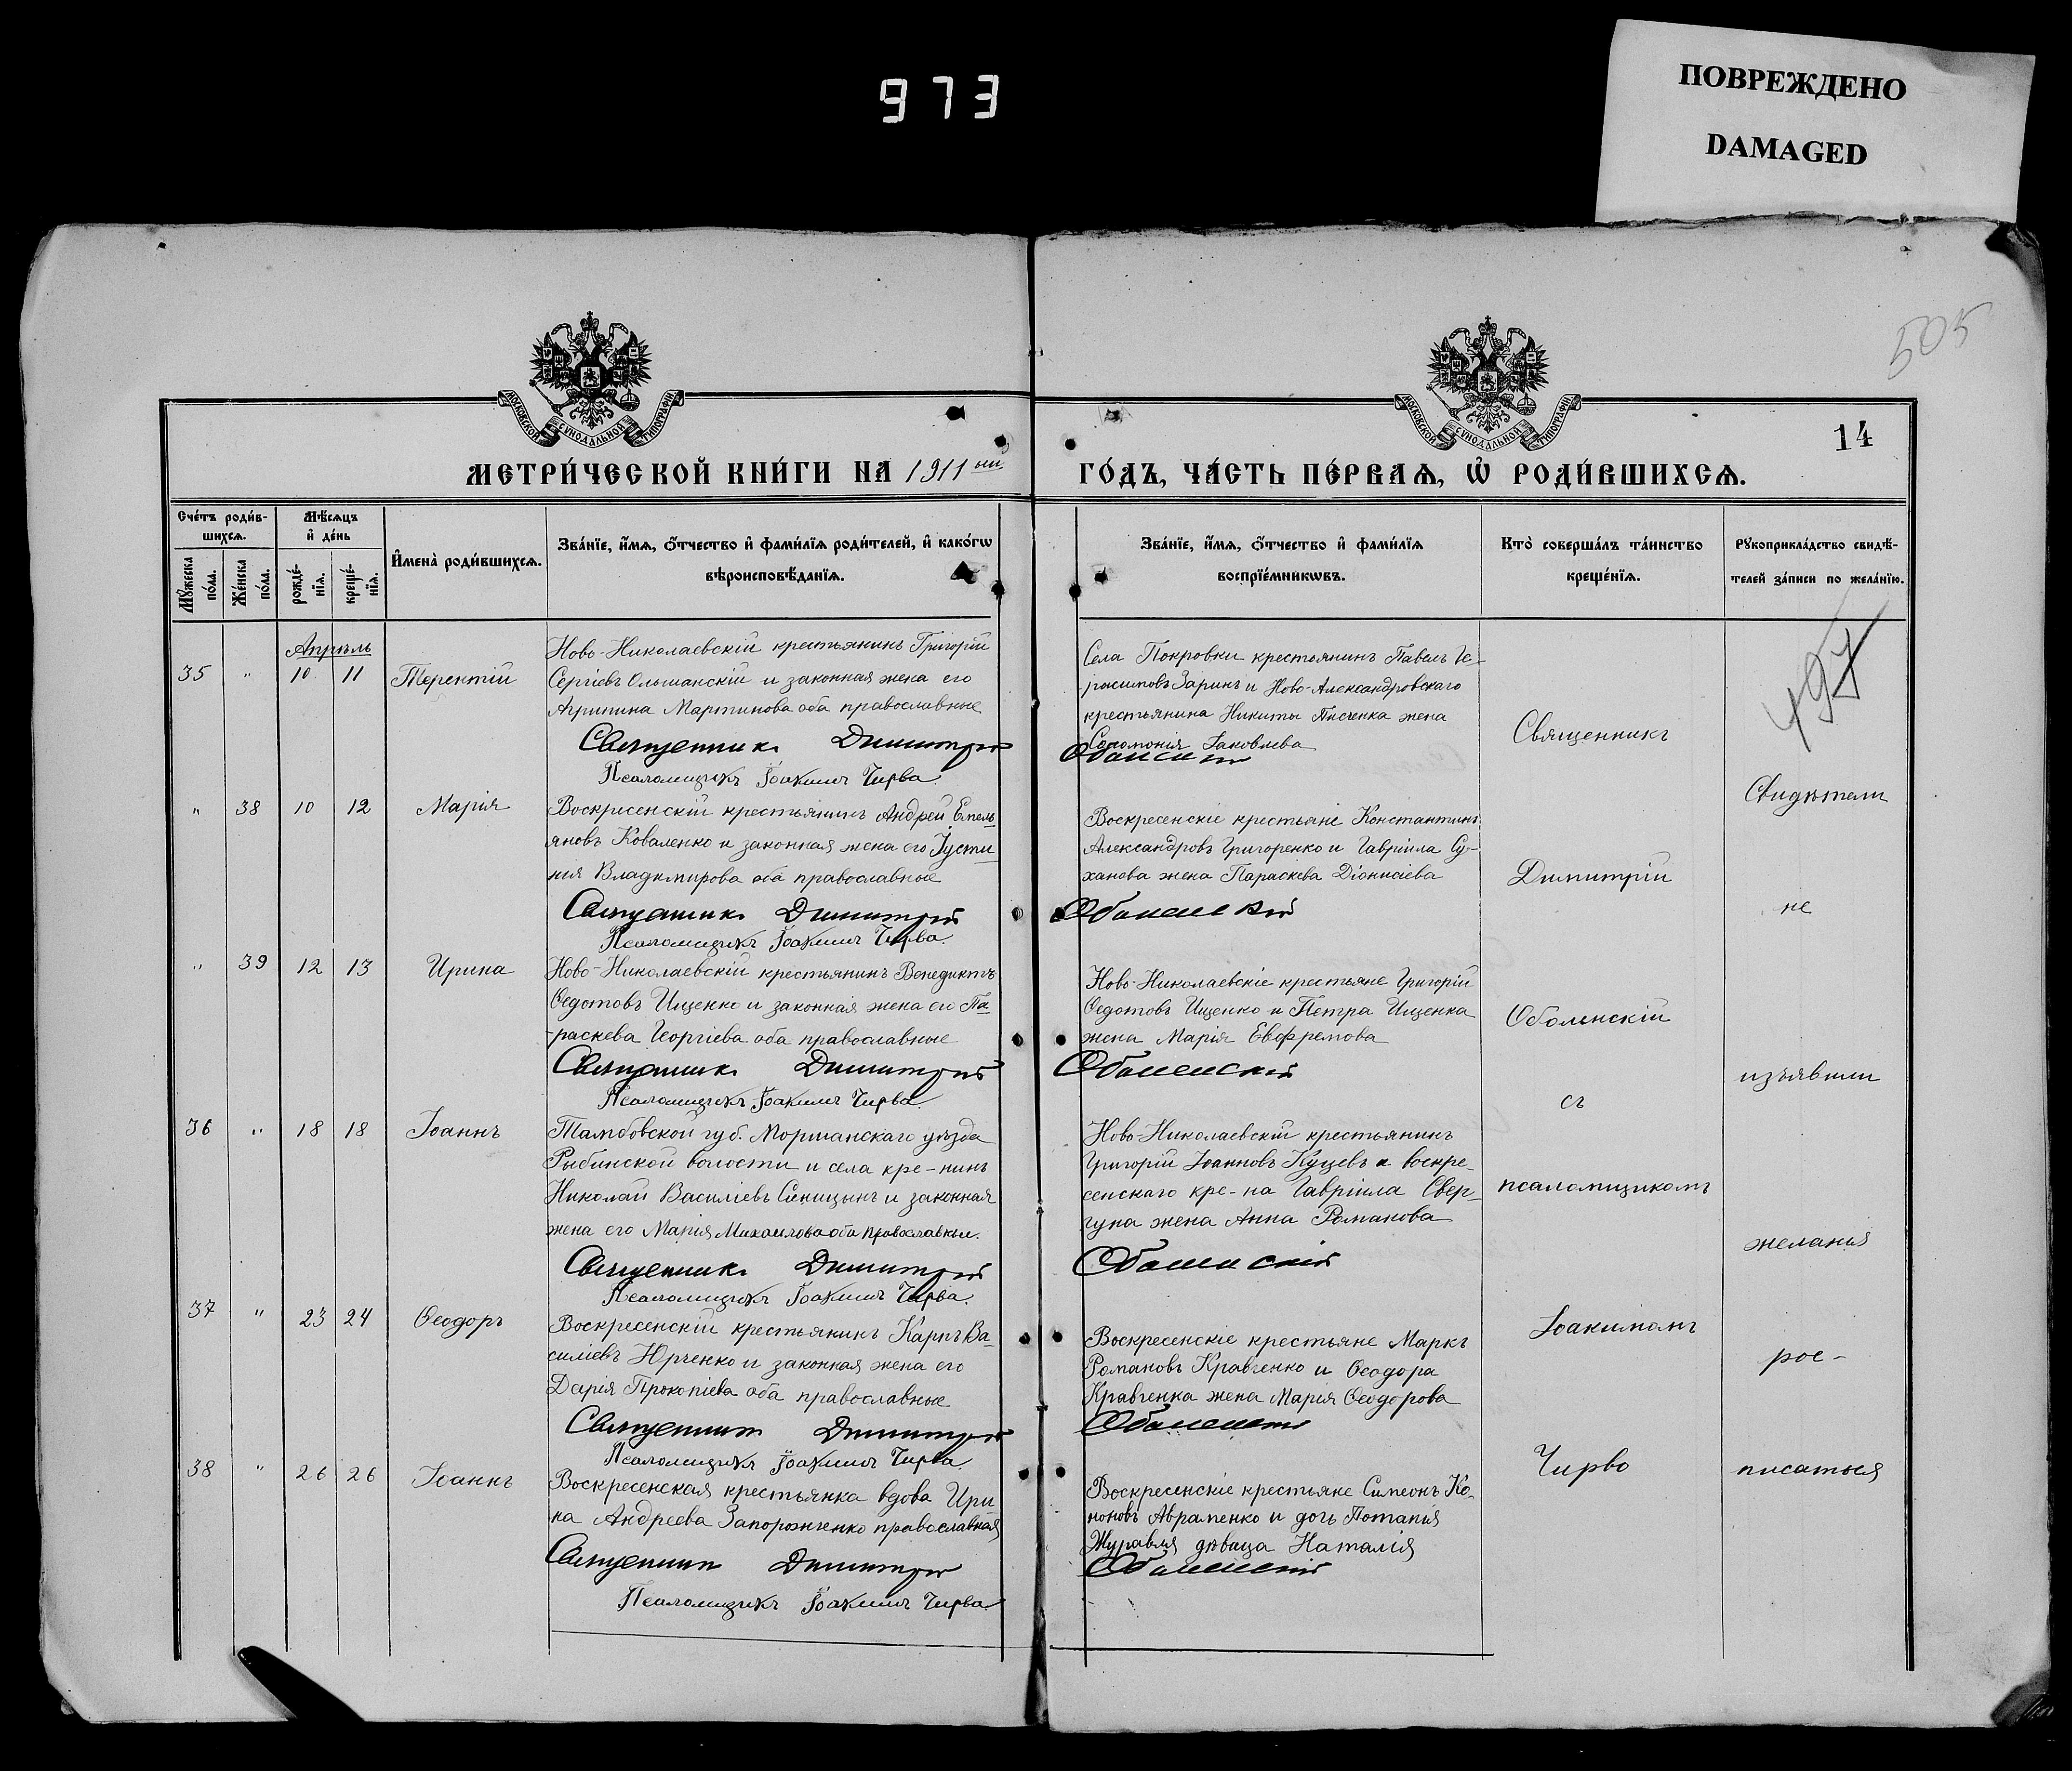 973
ПОВРЕЖДЕНО
DAMAGED
505
14
МОСКОВСКОЙ СѴНОДАЛЬНОЙ ТИПОГРАФІИ
МОСКОВСКОЙ СѴНОДАЛЬНОЙ ТИПОГРАФІИ
МЕТРИ́ЧЕСКОЙ КНИ́ГИ НА 1911ый ГО́ДЪ, ЧА́СТЬ ПЕ́РВАѦ, Ѽ РОДИ́ВШИХСѦ.
Сче́тъ роди́в-
шихсѧ.
Мꙋ́жеска по́ла.
Же́нска по́ла.
Мѣ́сѧцъ
и҆ де́нь
рожде́-
нїѧ.
креще́-
нїѧ.
И҆мена̀ роди́вшихсѧ.
Зва́нїе, и҆́мѧ, ѻ҆́тчество и҆ фами́лїѧ роди́телей, и҆ како́гѡ
вѣроисповѣ́данїѧ.
Зва́нїе, и҆́мѧ, ѻ҆́тчество и҆ фами́лїѧ
воспрїе́мникѡвъ.
Кто̀ соверша́лъ та́инство
креще́нїѧ.
Рꙋкоприкла́дство свидѣ́-
телей за́писи по жела́нїю.
497
Апрѣль
35 " 10 11 Терентій
Ново-Николаевскій крестьянинъ Григорій
Сергіевъ Ольшанскій и законная жена его
Агрипина Мартинова оба православные
Священникъ Димитрій Оболенскій
Псаломщикъ Іоакимъ Чирва.
Села Покровки крестьянинъ Павелъ Ге-
расимовъ Заринъ и Ново-Александровскаго
крестьянина Никиты жена
Соломонія Іаковлева
" 38 10 12 Марія
Воскресенскій крестьянинъ Андрей Емель
яновъ Коваленко и законная жена его Іусти
нія Владимирова оба православные
Священникъ Димитрій Оболенскій
Псаломщикъ Іоакимъ Чирва.
Воскресенскіе крестьяне Константинъ
Александровъ Григоренко и Гавріила Су-
ханова жена Параскева Діонисіева
" 39 12 13 Ирина
Ново-Николаевскій крестьянинъ Венедиктъ
Ѳедотовъ Ищенко и законная жена его Па
-раскева Георгіева оба православные
Священникъ Димитрій Оболенскій
Псаломщикъ Іоакимъ Чирва.
Ново-Николаевскіе крестьяне Григорій
Ѳедотовъ Ищенко и Петра Ищенка
жена Марія Евфремова
36 " 18 18 Іоаннъ
Тамбовской губ. Моршанскаго уѣзда
Рыбинской волости и села кре-нинъ
Николай Василіевъ Синицынъ и законная
жена его Марія Михаилова оба православные.
Священникъ Димитрій Оболенскій
Псаломщикъ Іоакимъ Чирва.
Ново-Николаевскій крестьянинъ
Григорій Іоанновъ Куцевъ и воскре-
сенскаго кре-на Гавріила Свер-
гуна жена Анна Романова
37 " 23 24 Ѳеодоръ
Воскресенскій крестьянинъ Карпъ Ва-
силіевъ Юрченко и законная жена его
Дарія Прокопіева оба православные
Священникъ Димитрій Оболенскій
Псаломщикъ Іоакимъ Чирва.
Воскресенскіе крестьяне Маркъ
Романовъ Кравченко и Ѳеодора
Кравченка жена Марія Ѳеодорова
38 " 26 26 Іоаннъ
Воскресенская крестьянка вдова Ири
на Андреева Запорожченко православная
Священникъ Димитрій Оболенскій
Псаломщикъ Іоакимъ Чирва.
Воскресенскіе крестьяне Симеонъ Ко-
ноновъ Авраменко и дочь Потапія
Журавля дѣвица Наталія
Священникъ
Димитрій
Оболенскій
съ
псаломщикомъ
Іоакимомъ
Чирво
Свидѣтели
не
изъявили
желанья
рос-
писаться